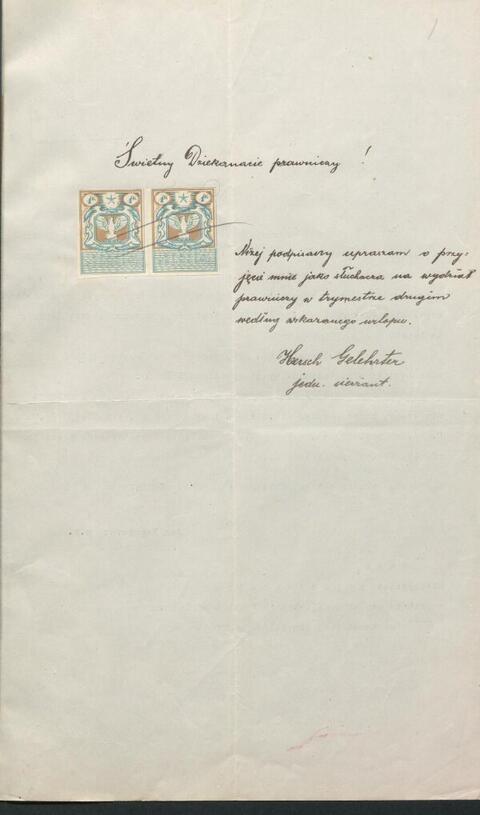 1
Świetny Dziekanacie prawniczy!
Niżej podpisany upraszam o przy-
jęcie mnie jako słuchacza na wydział
prawniczy w trymestrze drugim
według wskazanego
Hersch Gelehrter